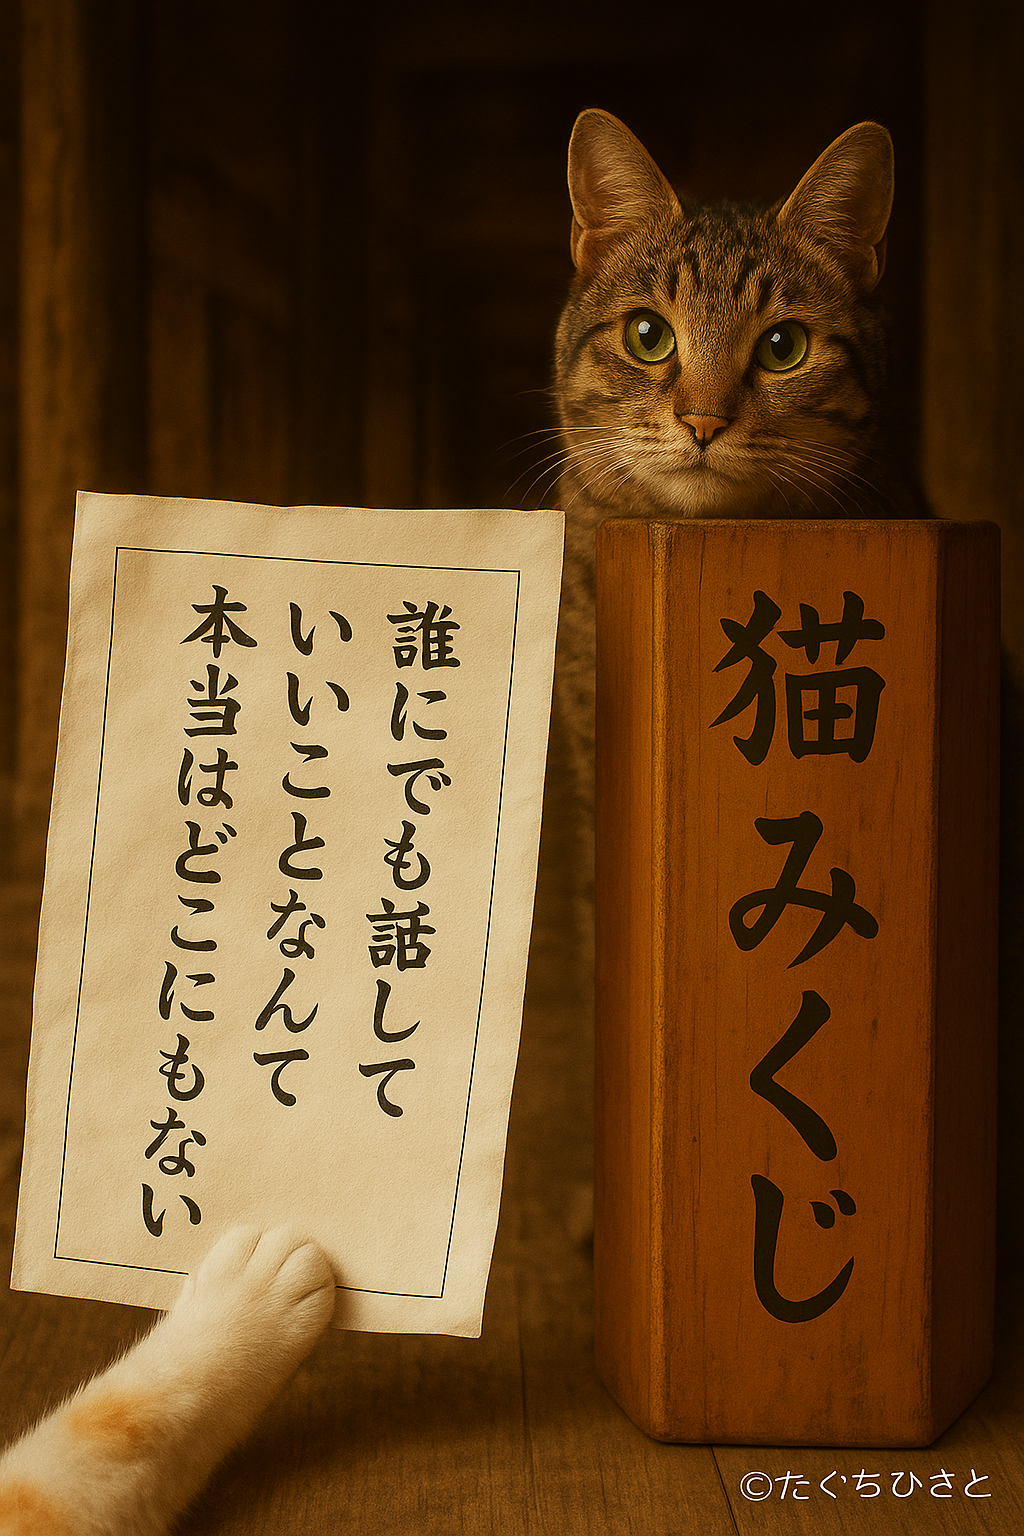 誰にでも話して
いいことなんて
本当はどこにもない
猫みくじ
©たぐちひさと